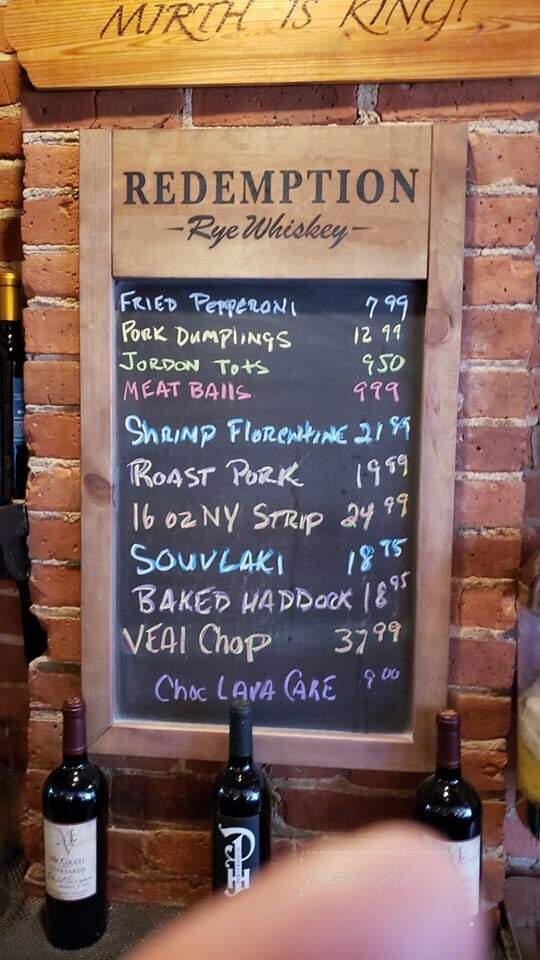 MIRTH IS KING!
REDEMPTION
-Rye Whiskey-
FRIED PEPPERONI 7 99
PORK DUMPLINGS 12 99
JORDON TOTS 9 50
MEAT BAllS 9 99
SHRIMP FLORENTINE 21 99
ROAST PORK 19 99
16 oz NY STRIP 24 99
SOUVLAKI 18 75
BAKED HADDOCK 18 95
VEAl Chop 37 99
Choc LAVA CAKE 9 00
McGRAIL
VINEYARDS